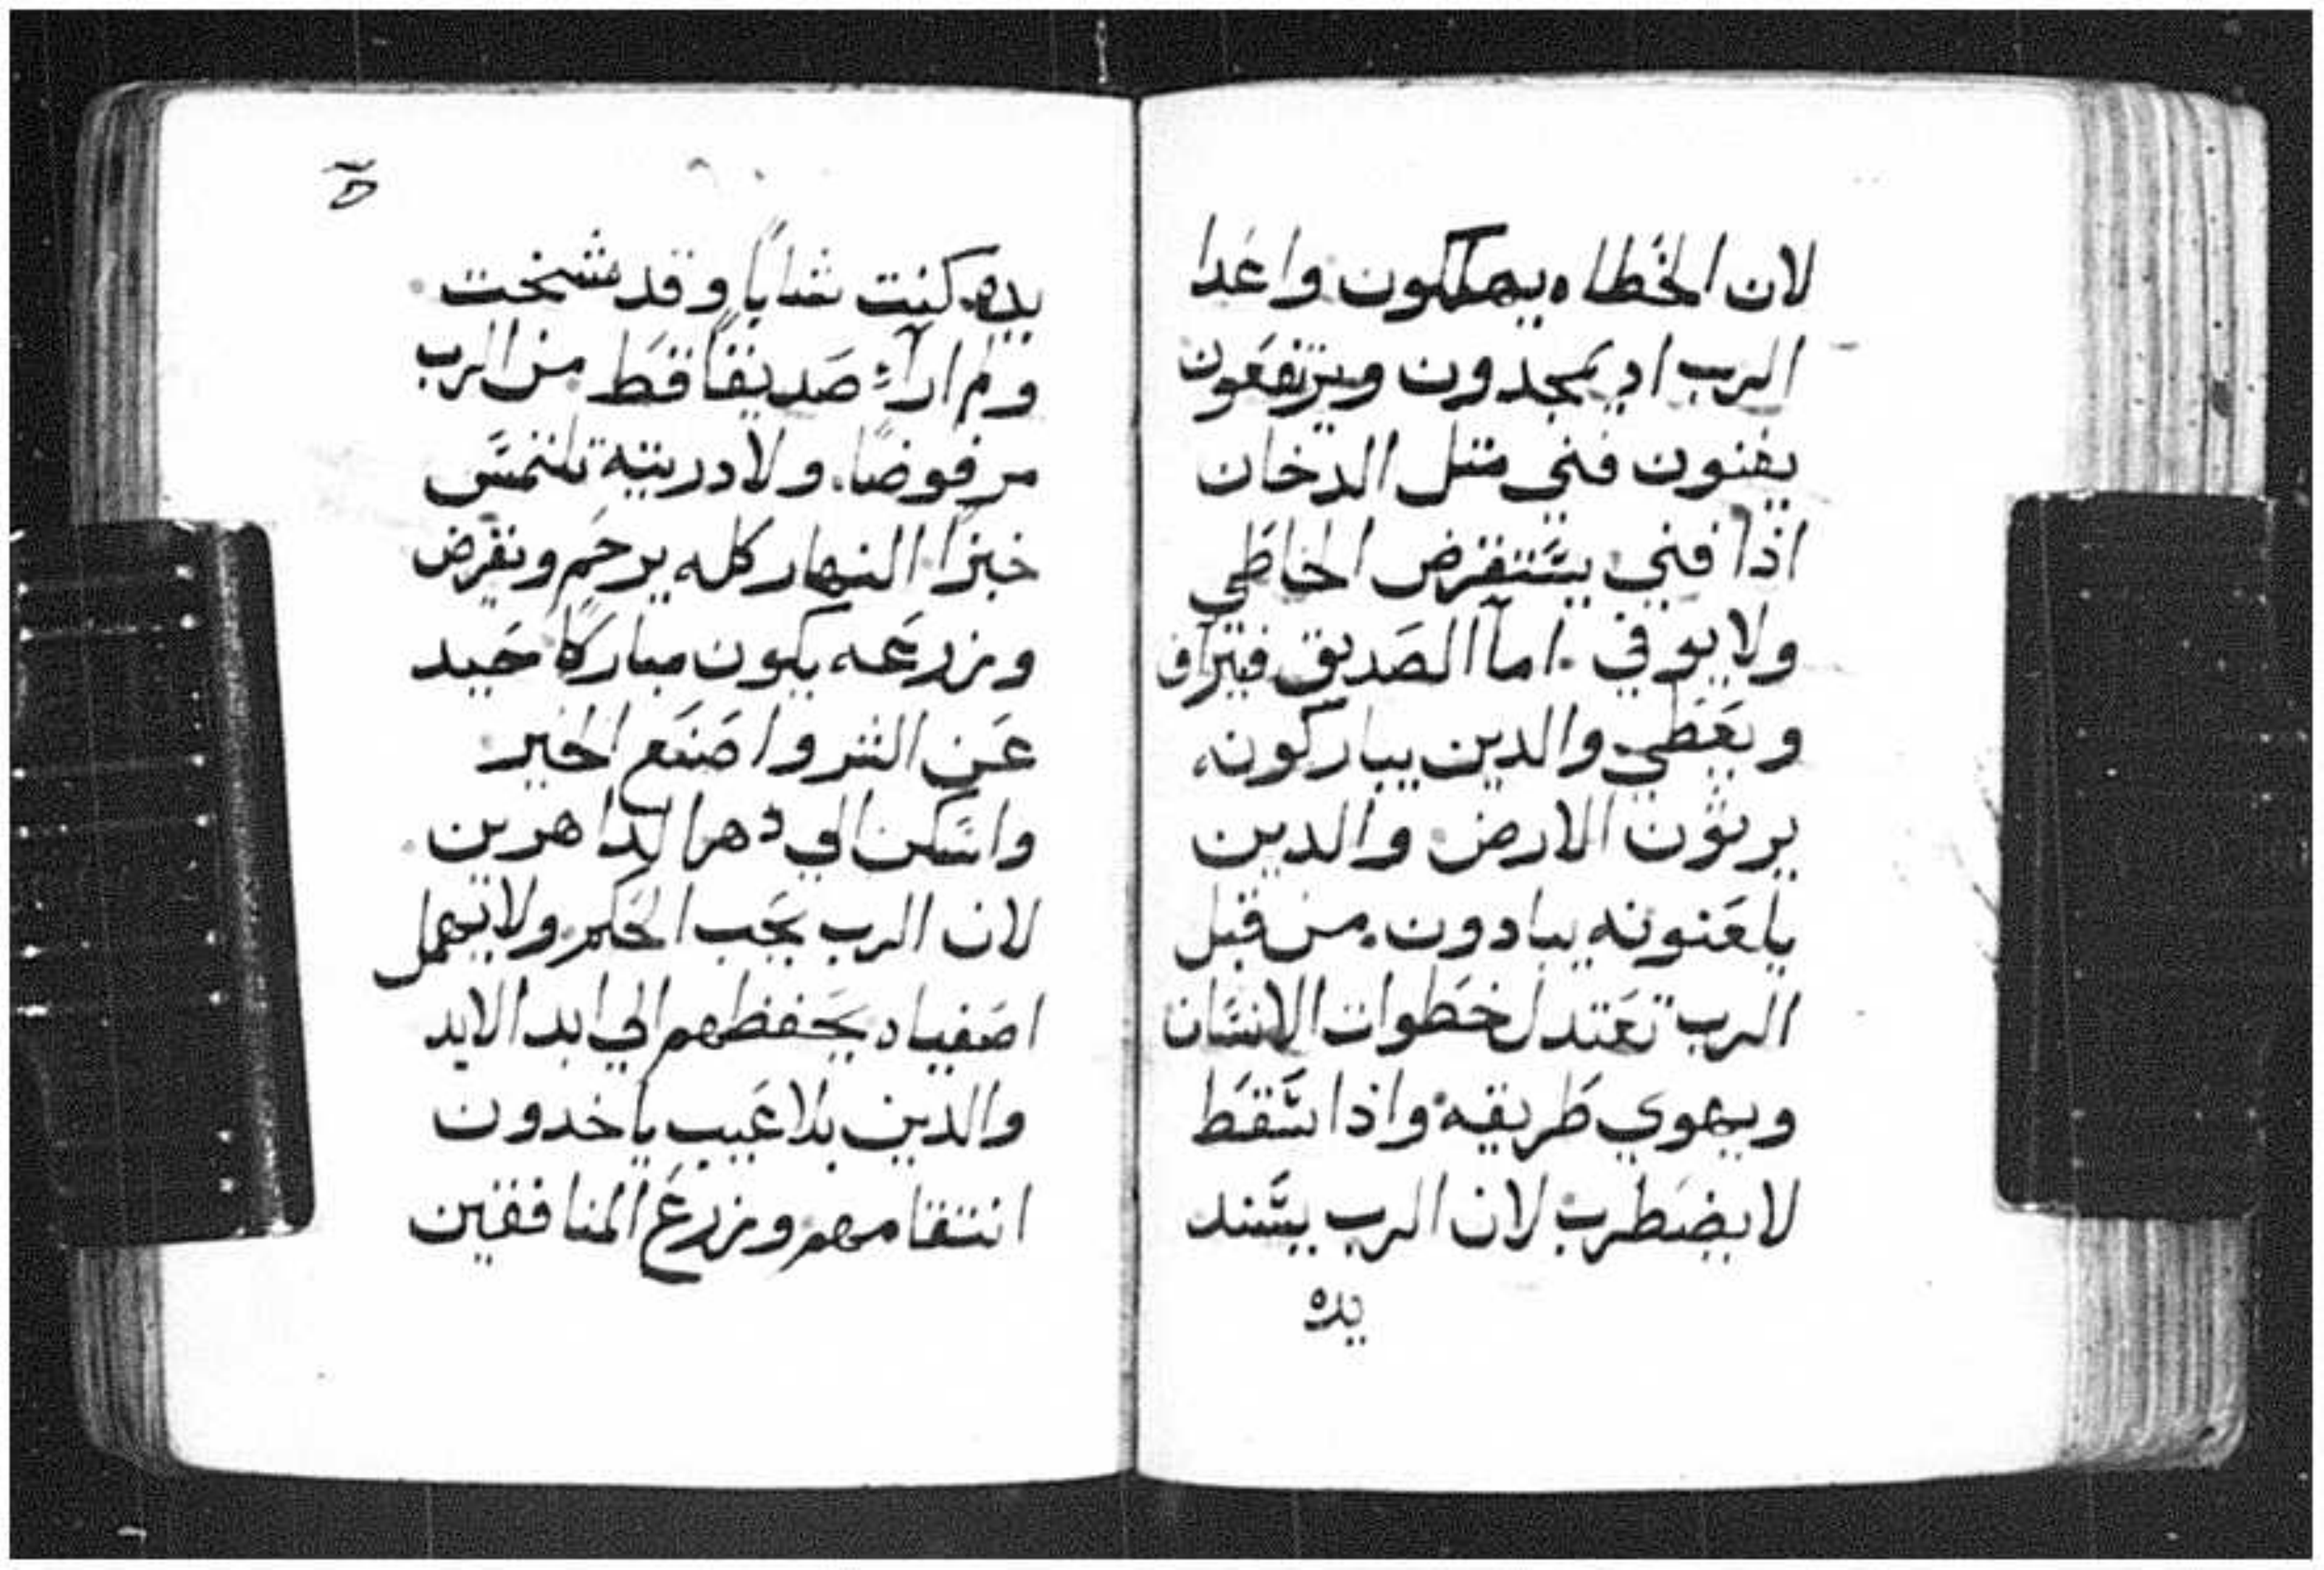 لان الخطاه يهلكون واعدا
الرب اد يمجدون ويرتفعون
يفنون فني متل الدخان
اذا فني يستقرض الخاطي
ولا يوفي. اما الصديق فيتراف
ويعطي والدين يباركونه
يرثون الارض والدين
يلعنونه يبادون. من قبل
الرب تعتدل خطوات الانسان
ويهوي طريقه واذا سقط
لا يضطرب لان الرب يسند
يده
يده. كنت شابًا وقد شخت
ولم اراء صديقًا قط من الرب
مرفوضًا. ولا دريته تلتمس
خبزًا النهار كله يرحم ويقرض
وزرعه يكون مباركًا حيد
عن الشر واصنع الخير
واسكن الي دهر الداهرين
لان الرب يحب الحكم ولا يهمل
اصفياه يحفظهم الي ابد الابد
والدين بلا عيب ياخدون
انتقامهم وزرع المنافقين